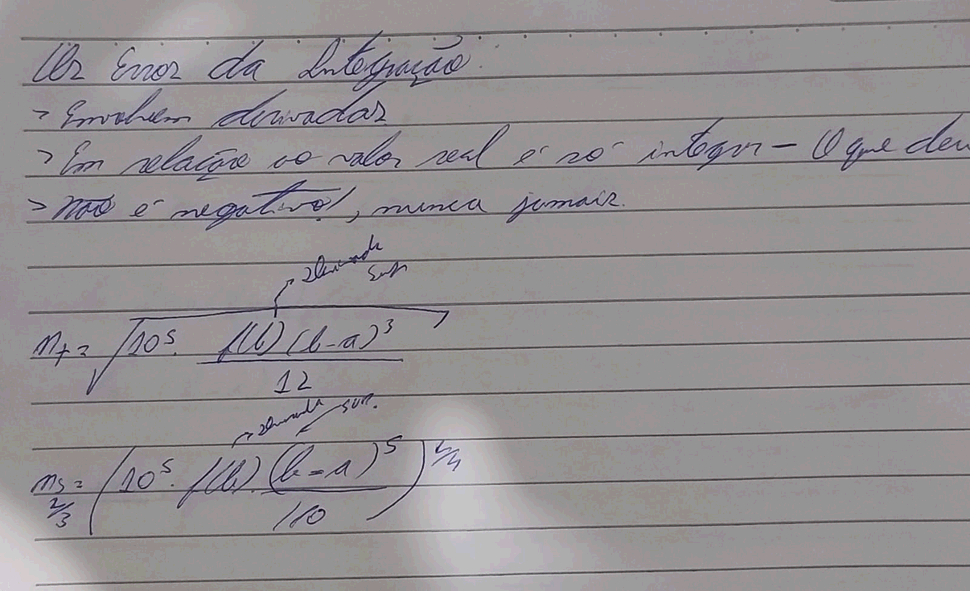 Os Erros da Integração.
> Envolvem derivadas
> Em relação ao valor real é só integrar - O que deu
> Não é negativo!, nunca jamais.
derivada
sup.
n_t = √(10^5 · f(b)(b-a)^3 / 12)
derivada sup.
n_s = (10^5 · f(b) · (b-a)^5 / 180)^1/4